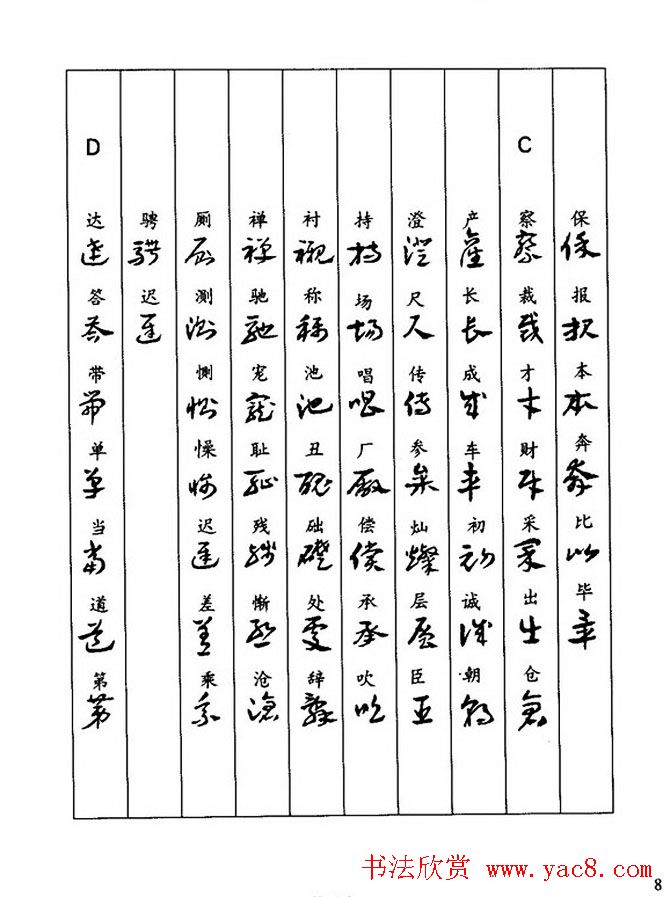 保 报 本 奔 比 毕
C 察 裁 才 财 采 出 仓
产 长 成 车 初 诚 朝
澄 尺 传 参 灿 层 臣
持 场 唱 厂 偿 承 吹
衬 称 池 丑 础 处 辞
禅 驰 宠 耻 残 惭 沧
厕 测 恻 懆 迟 差 乘
骋 迟
D 达 答 带 单 当 道 第
书法欣赏 www.yac8.com
8